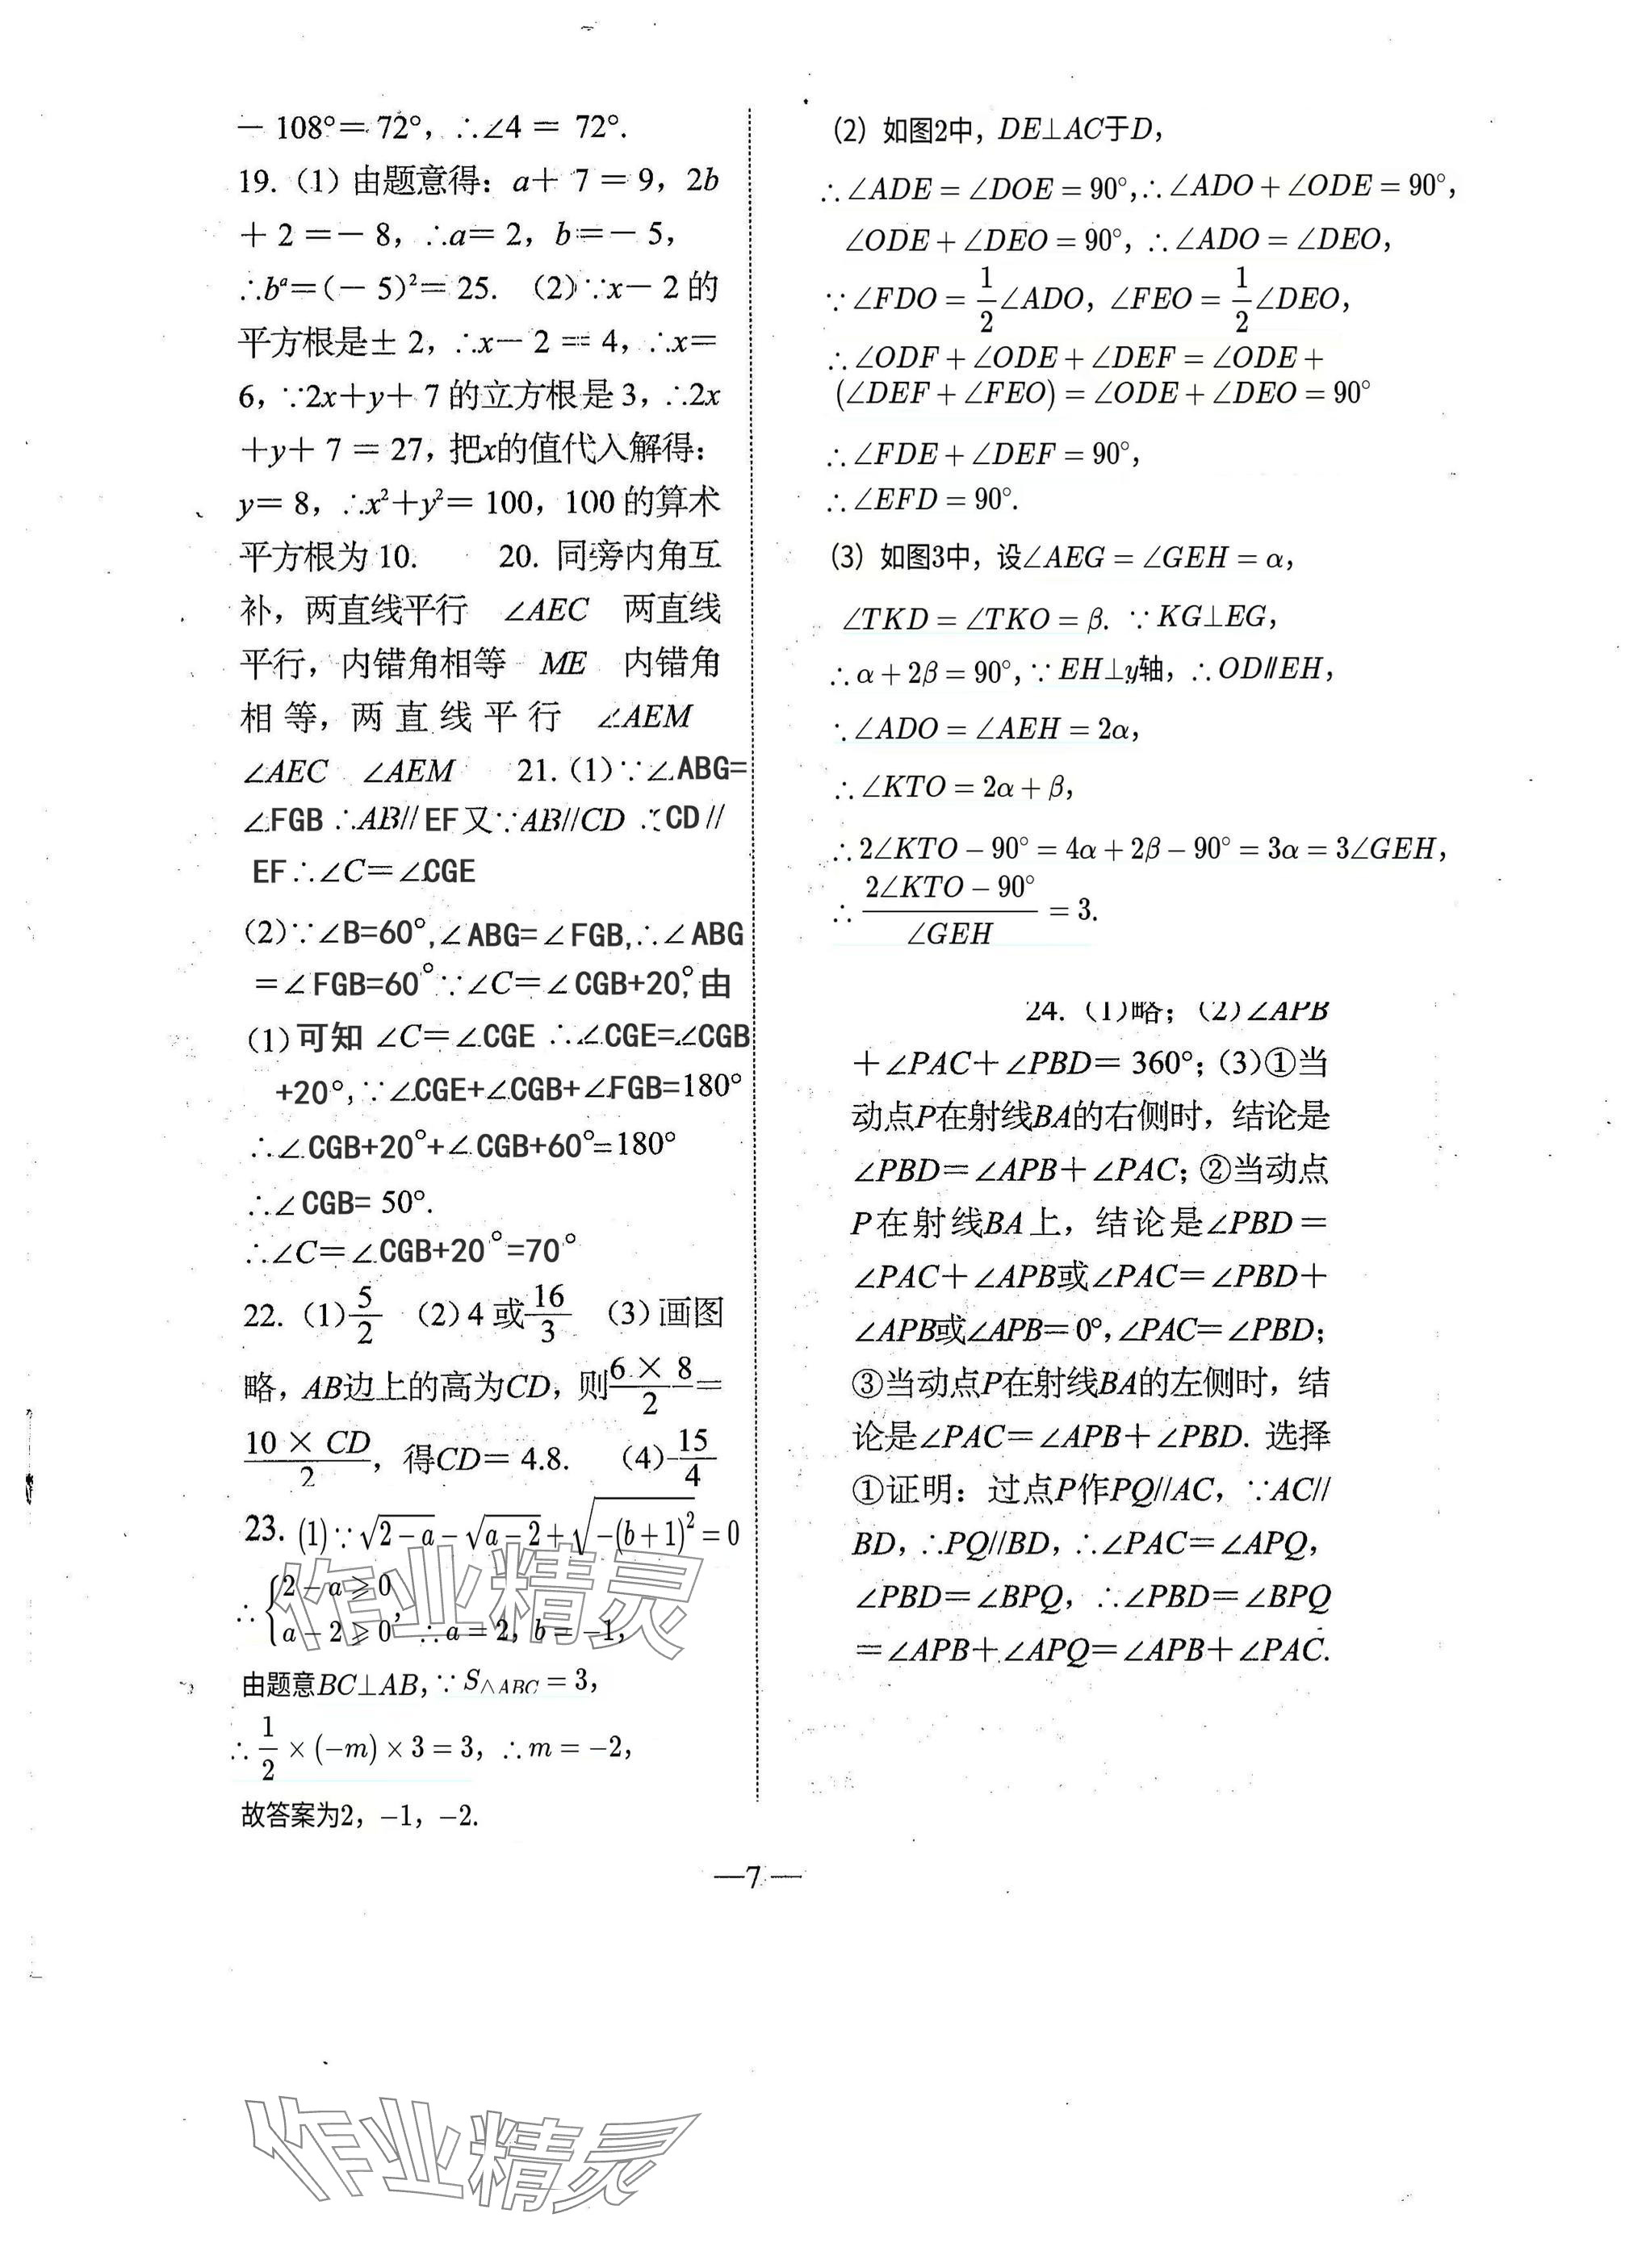 －108°＝72°，∴∠4＝72°.
19.（1）由题意得：a＋7＝9，2b
＋2＝－8，∴a＝2，b＝－5，
∴bᵃ＝(－5)²＝25. （2）∵x－2的
平方根是±2，∴x－2＝4，∴x＝
6，∵2x＋y＋7的立方根是3，∴2x
＋y＋7＝27，把x的值代入解得：
y＝8，∴x²＋y²＝100，100的算术
平方根为10. 20. 同旁内角互
补，两直线平行 ∠AEC 两直线
平行，内错角相等 ME 内错角
相等，两直线平行 ∠AEM
∠AEC ∠AEM 21.（1）∵∠ABG=
∠FGB ∴AB//EF又∵AB//CD ∴CD//
EF∴∠C＝∠CGE
(2)∵∠B=60°,∠ABG=∠FGB,∴∠ABG
=∠FGB=60°∵∠C＝∠CGB+20°,由
(1)可知∠C＝∠CGE ∴∠CGE=∠CGB
+20°,∵∠CGE+∠CGB+∠FGB=180°
∴∠CGB+20°+∠CGB+60°=180°
∴∠CGB= 50°.
∴∠C＝∠CGB+20°=70°
22.（1）5/2 （2）4或16/3 （3）画图
略，AB边上的高为CD，则(6×8)/2＝
(10×CD)/2，得CD＝4.8. （4）15/4
23. (1)∵√(2－a)－√(a－2)＋√(－(b+1)²)＝0
∴{2－a⩾0, a－2⩾0 ∴a＝2，b＝－1，
由题意BC⊥AB，∵S△ABC＝3，
∴1/2×(－m)×3＝3，∴m＝－2，
故答案为2，－1，－2.
（2）如图2中，DE⊥AC于D，
∴∠ADE＝∠DOE＝90°,∴∠ADO＋∠ODE＝90°，
∠ODE＋∠DEO＝90°，∴∠ADO＝∠DEO，
∵∠FDO＝1/2∠ADO，∠FEO＝1/2∠DEO，
∴∠ODF＋∠ODE＋∠DEF＝∠ODE＋
(∠DEF＋∠FEO)＝∠ODE＋∠DEO＝90°
∴∠FDE＋∠DEF＝90°，
∴∠EFD＝90°.
（3）如图3中，设∠AEG＝∠GEH＝α，
∠TKD＝∠TKO＝β. ∵KG⊥EG，
∴α＋2β＝90°，∵EH⊥y轴，∴OD∥EH，
∵∠ADO＝∠AEH＝2α，
∴∠KTO＝2α＋β，
∴2∠KTO－90°＝4α＋2β－90°＝3α＝3∠GEH，
∴(2∠KTO－90°)/∠GEH＝3.
24.（1）略；（2）∠APB
＋∠PAC＋∠PBD＝360°；（3）①当
动点P在射线BA的右侧时，结论是
∠PBD＝∠APB＋∠PAC；②当动点
P在射线BA上，结论是∠PBD＝
∠PAC＋∠APB或∠PAC＝∠PBD＋
∠APB或∠APB＝0°，∠PAC＝∠PBD；
③当动点P在射线BA的左侧时，结
论是∠PAC＝∠APB＋∠PBD. 选择
①证明：过点P作PQ//AC，∵AC//
BD，∴PQ//BD，∴∠PAC＝∠APQ，
∠PBD＝∠BPQ，∴∠PBD＝∠BPQ
＝∠APB＋∠APQ＝∠APB＋∠PAC.
—7—
作业精灵
作业精灵